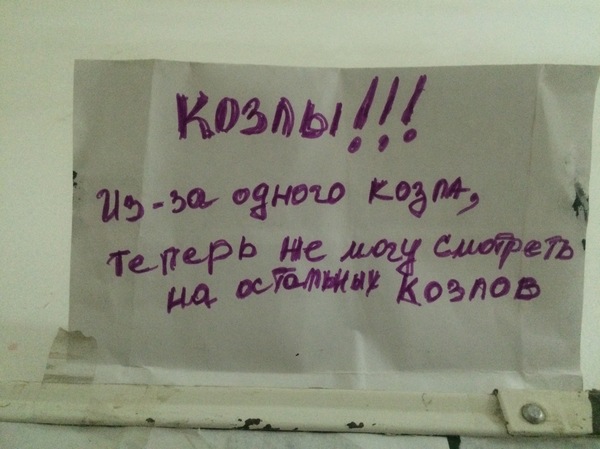 КОЗЛЫ!!!
Из-за одного козла,
теперь не могу смотреть
на остальных козлов